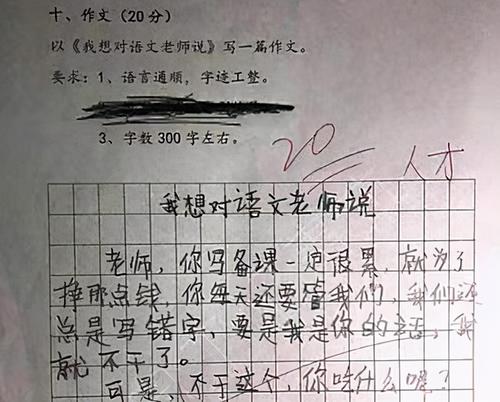 十、作文(20分)
以《我想对语文老师说》写一篇作文。
要求:1、语言通顺,字迹工整。
3、字数300字左右。
20
人才
我想对语文老师说
老师,你写备课一定很累,就为了
挣那点钱,你每天还要管我们,我们还
总是写错字,要是我是你的话,我
就不干了。
可是,不干这个,你吃什么呢?